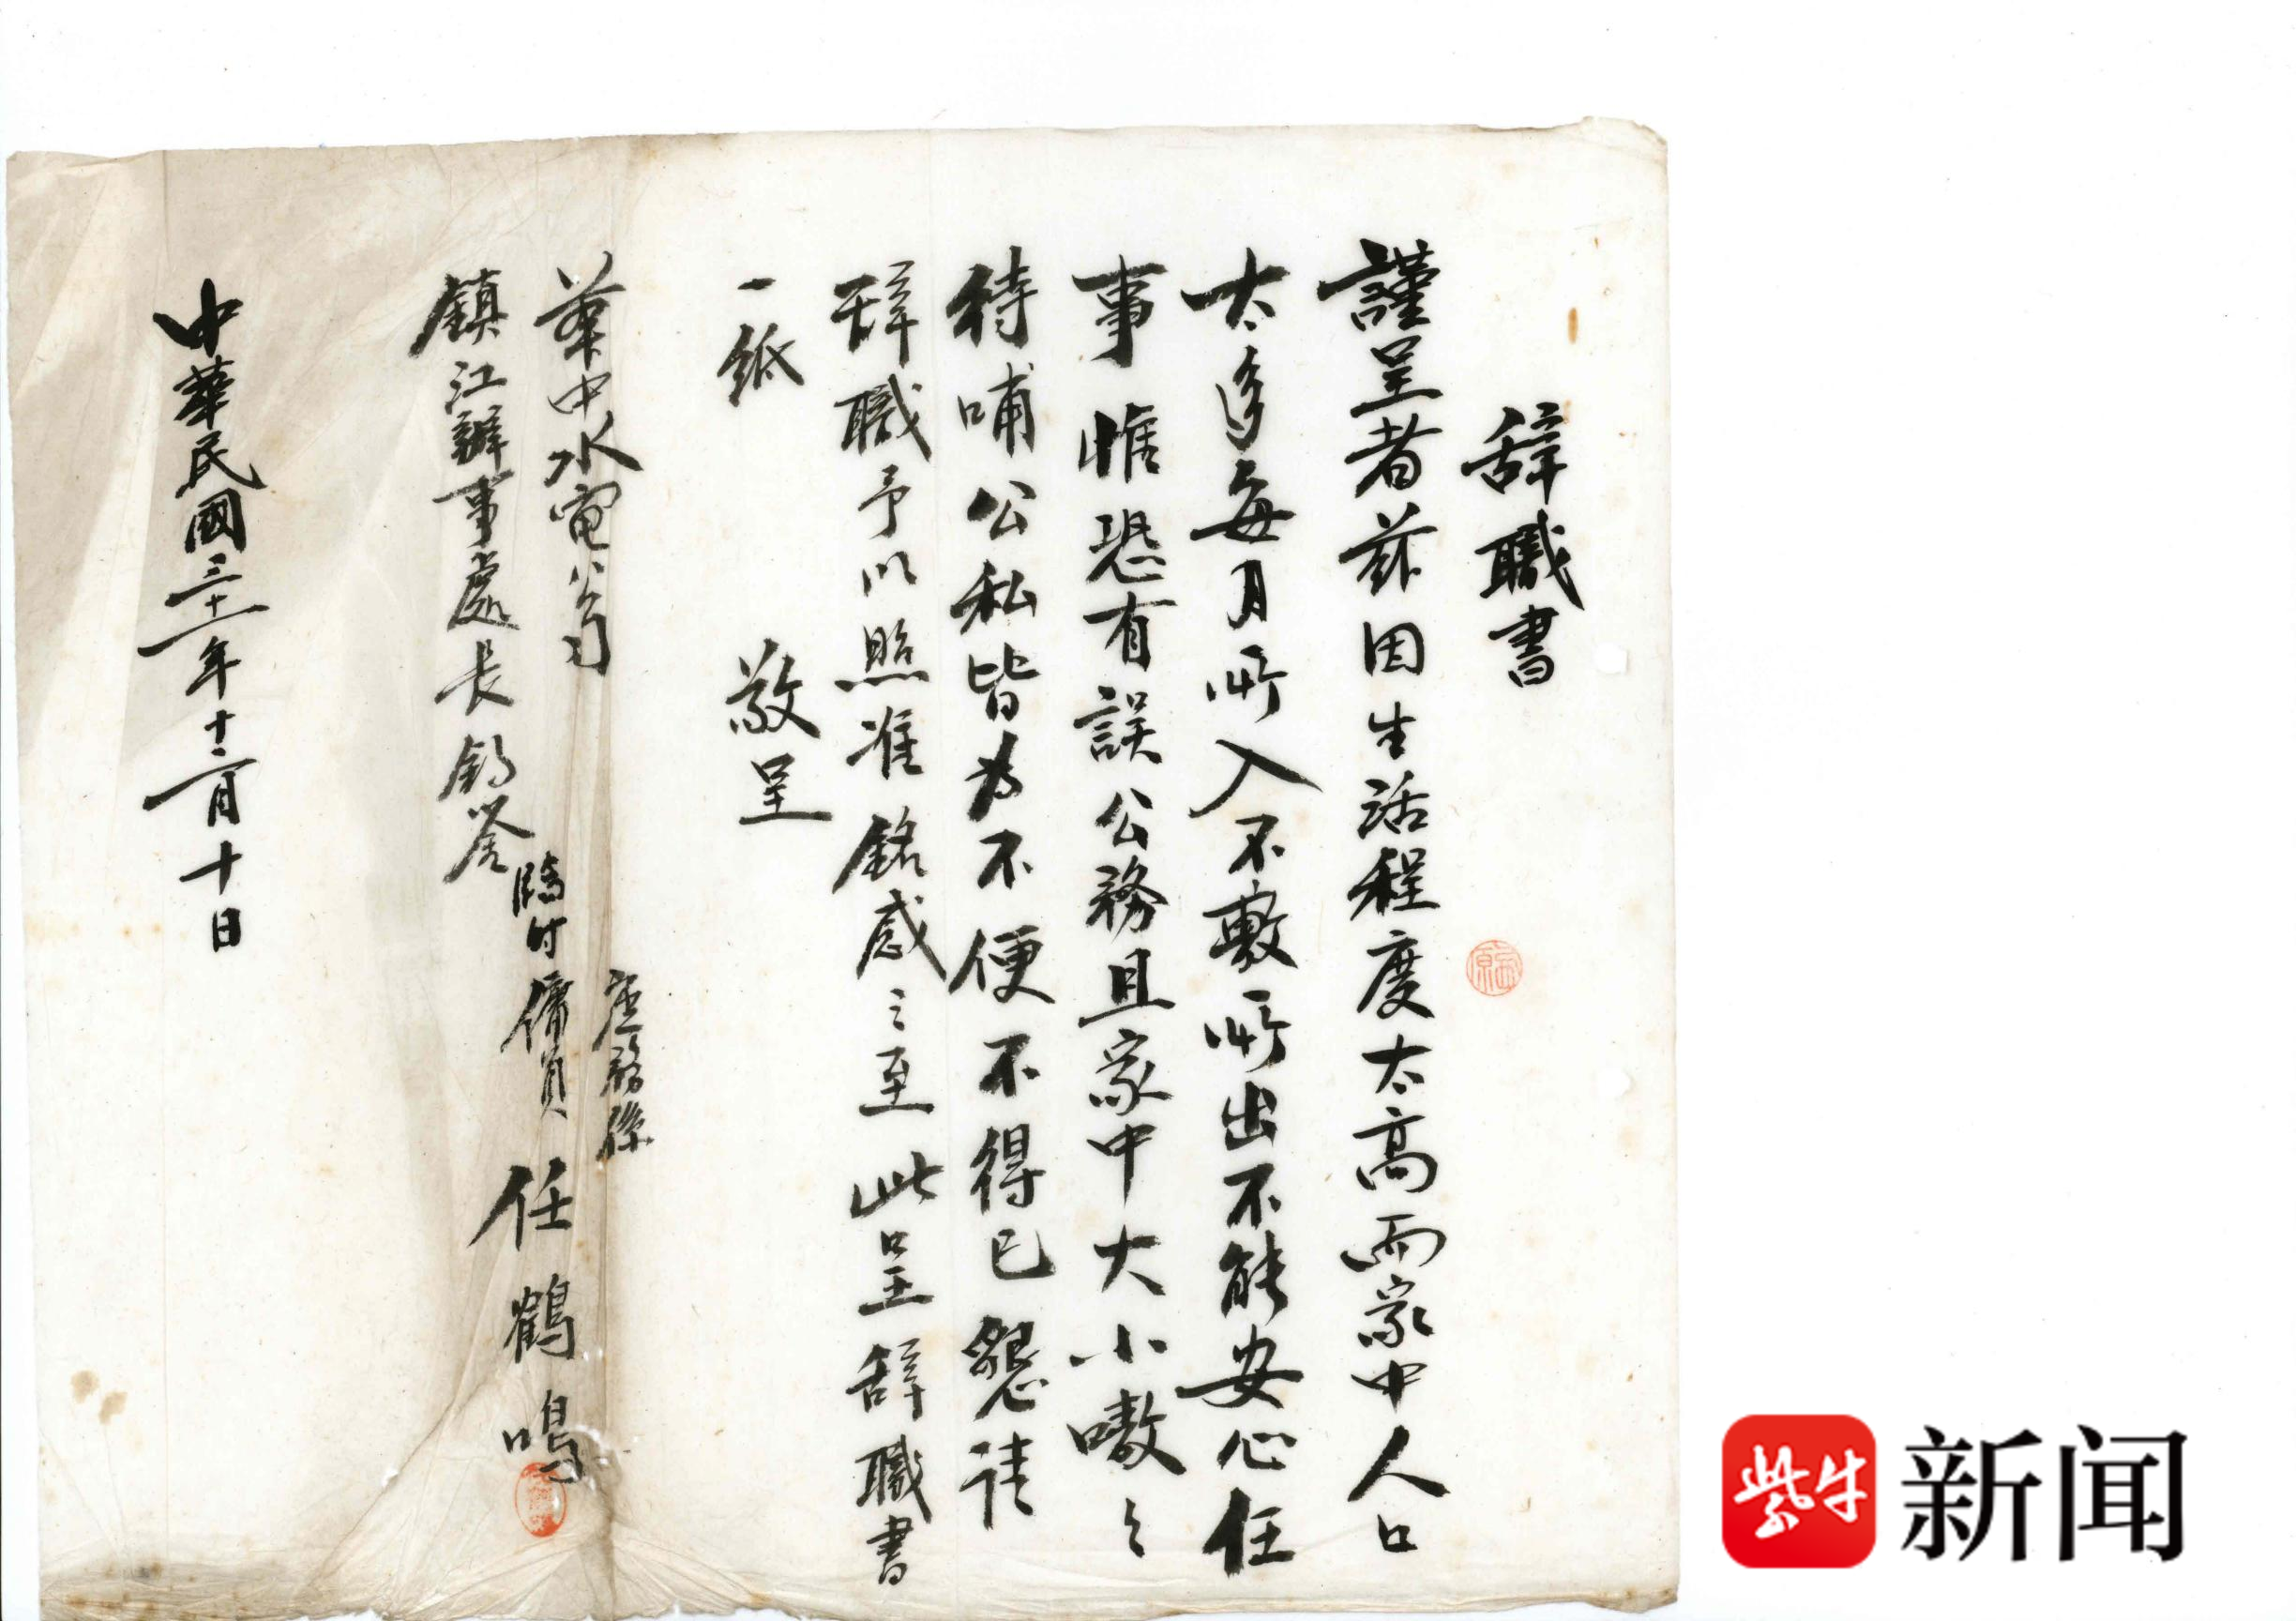 辞職書
謹呈者茲因生活程度太高而家中人口
太多每月所入不敷所出不能安心任
事惟恐有誤公務且家中大小嗷々
待哺公私皆为不便不得已懇请
辞職予以照准銘感之至此呈辞職書
一紙
敬呈
華中水電公司
鎮江辦事處長鈞鉴
業務係
臨时傭員任鶴鳴
中華民國三十一年十二月十日
紫牛新闻